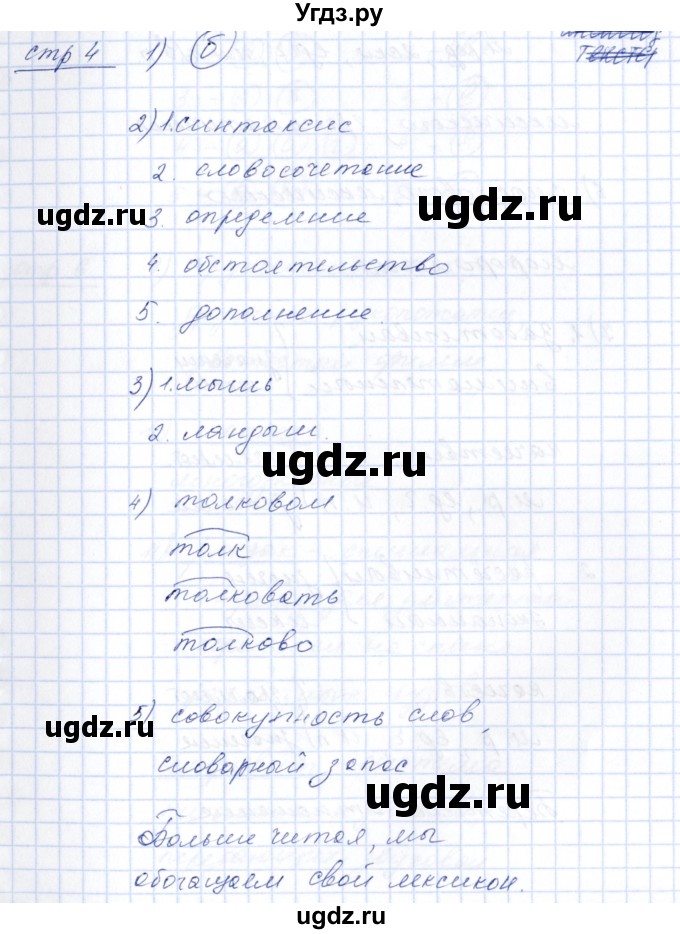 Угдз.ру
стр 4 1) б
текста
2) 1. синтаксис
2. словосочетание
ugdz.ru
ugdz.ru
3. определение
4. обстоятельство
5. дополнение.
3) 1. мышь
2. ландыш.
ugdz.ru
4) толковом
толк
толковать
толково
ugdz.ru
5) совокупность слов,
словарный запас
ugdz.ru
Больше читая, мы
обогащаем свой лексикон.
ugdz.ru